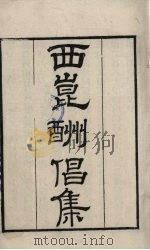 西崑酬倡集
mtoou.info